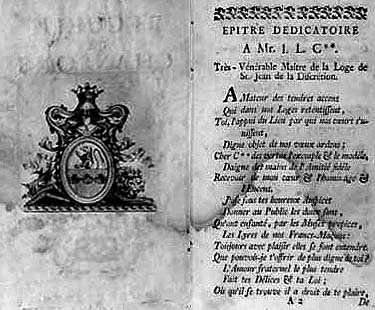 EPITRE DEDICATOIRE
A Mr. I. L. C**.
Très-Vénérable Maître de la Loge de
St. Jean de la Discrétion.
AMateur des tendres accens
Qui dans nos Loges retentissent,
Toi, l'appui du Lien par qui nos cœurs s'u-
nissent,
Digne objet de nos vœux ardens;
Cher C** des vertus l'exemple & le modéle,
Daigne des mains de l'Amitié fidèle
Recevoir de mon cœur & l'hommage &
l'Encens.
J'ose sous tes heureux Auspices
Donner au Public les doux sons,
Qu'ont enfanté, par les Muses propices,
Les Lyres de nos Francs-Maçons:
Toujours avec plaisir elles se font entendre.
Que pouvois-je t'offrir de plus digne de toi?
L'Amour fraternel le plus tendre
Fait tes Délices & ta Loi;
Où qu'il se trouve il a droit de te plaire,
A 2 De